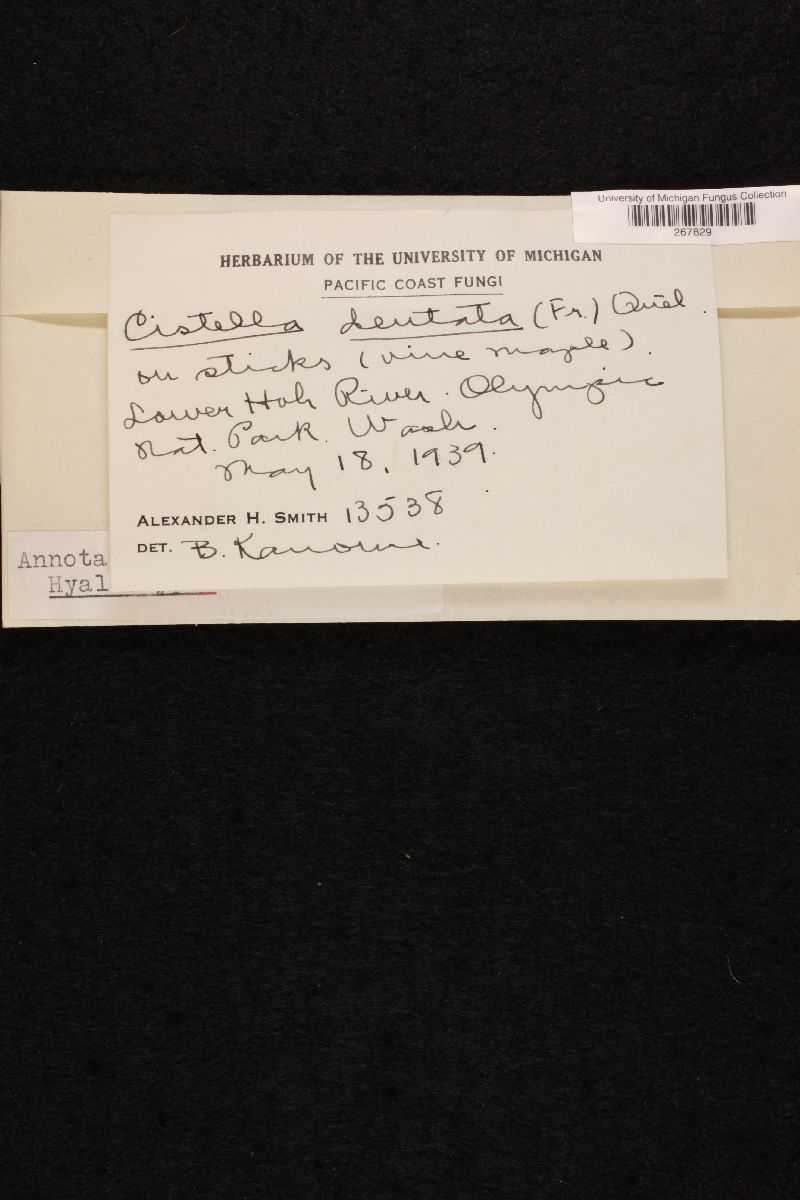 University of Michigan Fungus Collection
267829
HERBARIUM OF THE UNIVERSITY OF MICHIGAN
PACIFIC COAST FUNGI
Cistella dentata (Fr.) Quél.
on sticks (vine maple).
Lower Hoh River. Olympic
Nat. Park. Wash.
May 18, 1939.
ALEXANDER H. SMITH 13538
DET. B. Kanouse.
Annota
Hyal